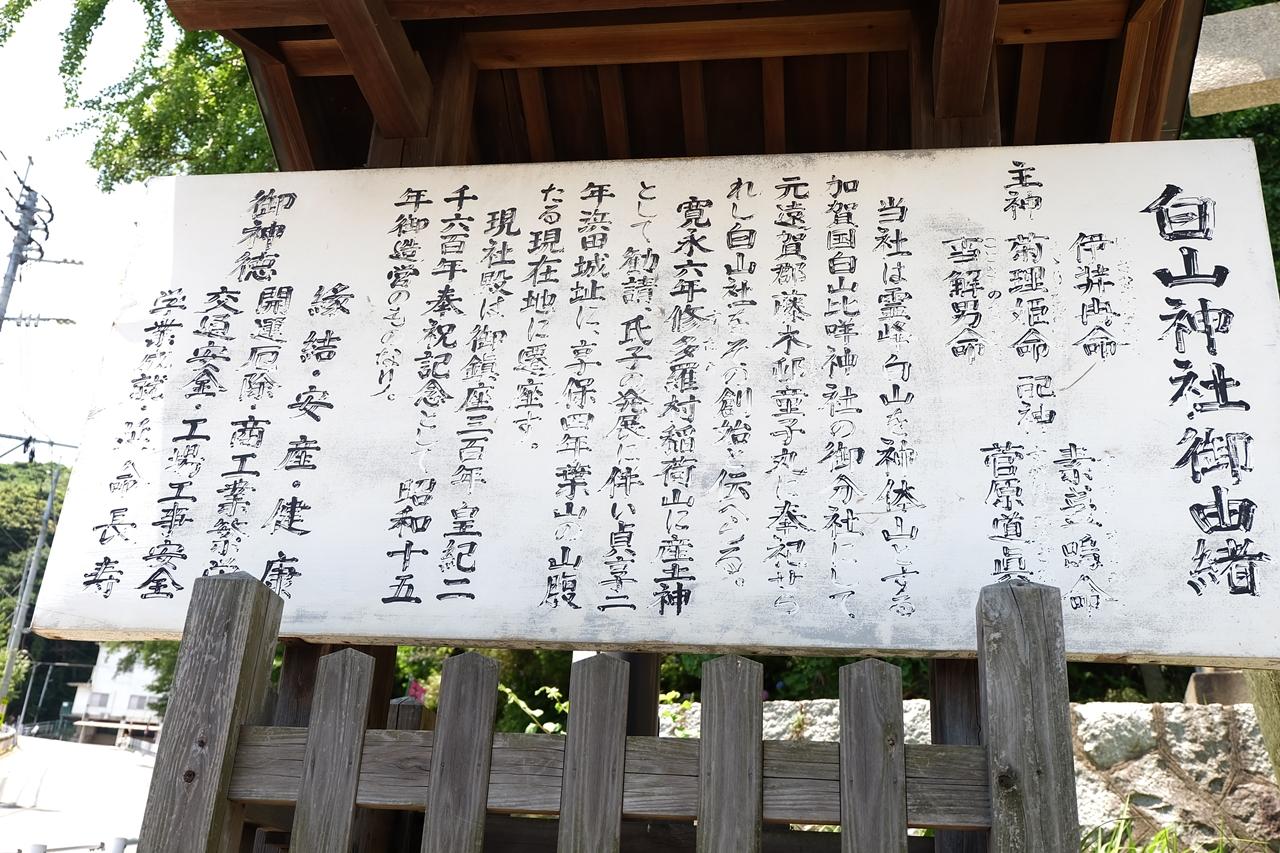 白山神社御由緒
伊弉冉命
主神 菊理姫命 配神
素戔嗚命
菅原道真
当社は霊峰白山を神体山とする
加賀国白山比咩神社の御分社にして
元遠賀郡藤木邨童子丸に奉祀せら
れし白山社をその創始と伝へる。
寛永六年修多羅村稲荷山に産土神
として勧請、氏子の発展に伴い貞享二
年浜田城址に、享保四年葉山の山腹
たる現在地に遷座す。
現社殿は御鎮座三百年皇紀二
千六百年奉祝記念として昭和十五
年御造営のものなり。
御神徳
縁結・安産・健康
開運厄除・商工業繁
交通安全・工場工事安全
学業成就・ 命長寿